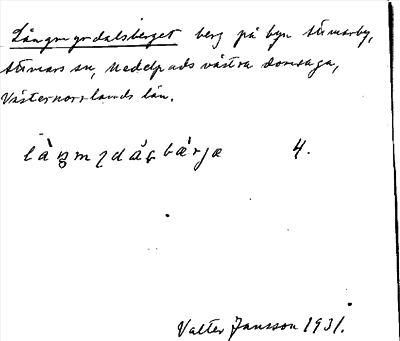 Långmyrdalsberget berg på byn Stimarby,
Attmars sn, Medelpads västra domsaga,
Västernorrlands län.
4.
Valter Jansson 1931.